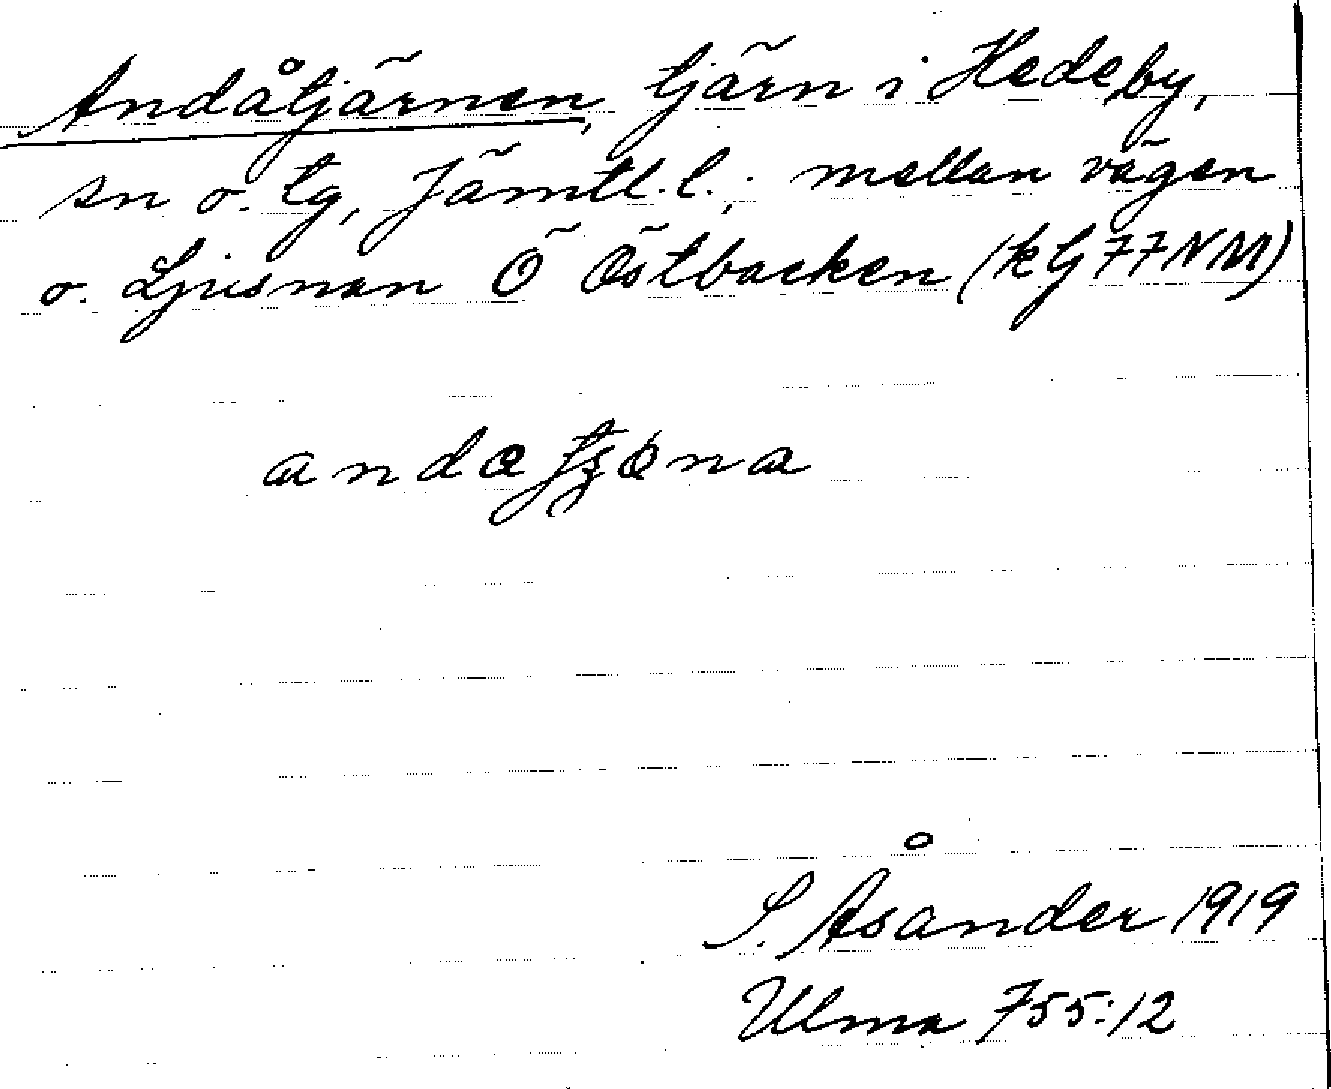 Andåtjärnen, tjärn i Hede, by,
sn o. tg, Jämtl. l.; mellan vägen
o. Ljusnan Ö Östbacken (kG 77NM)
S. Åsander 1919
Ulma 755:12